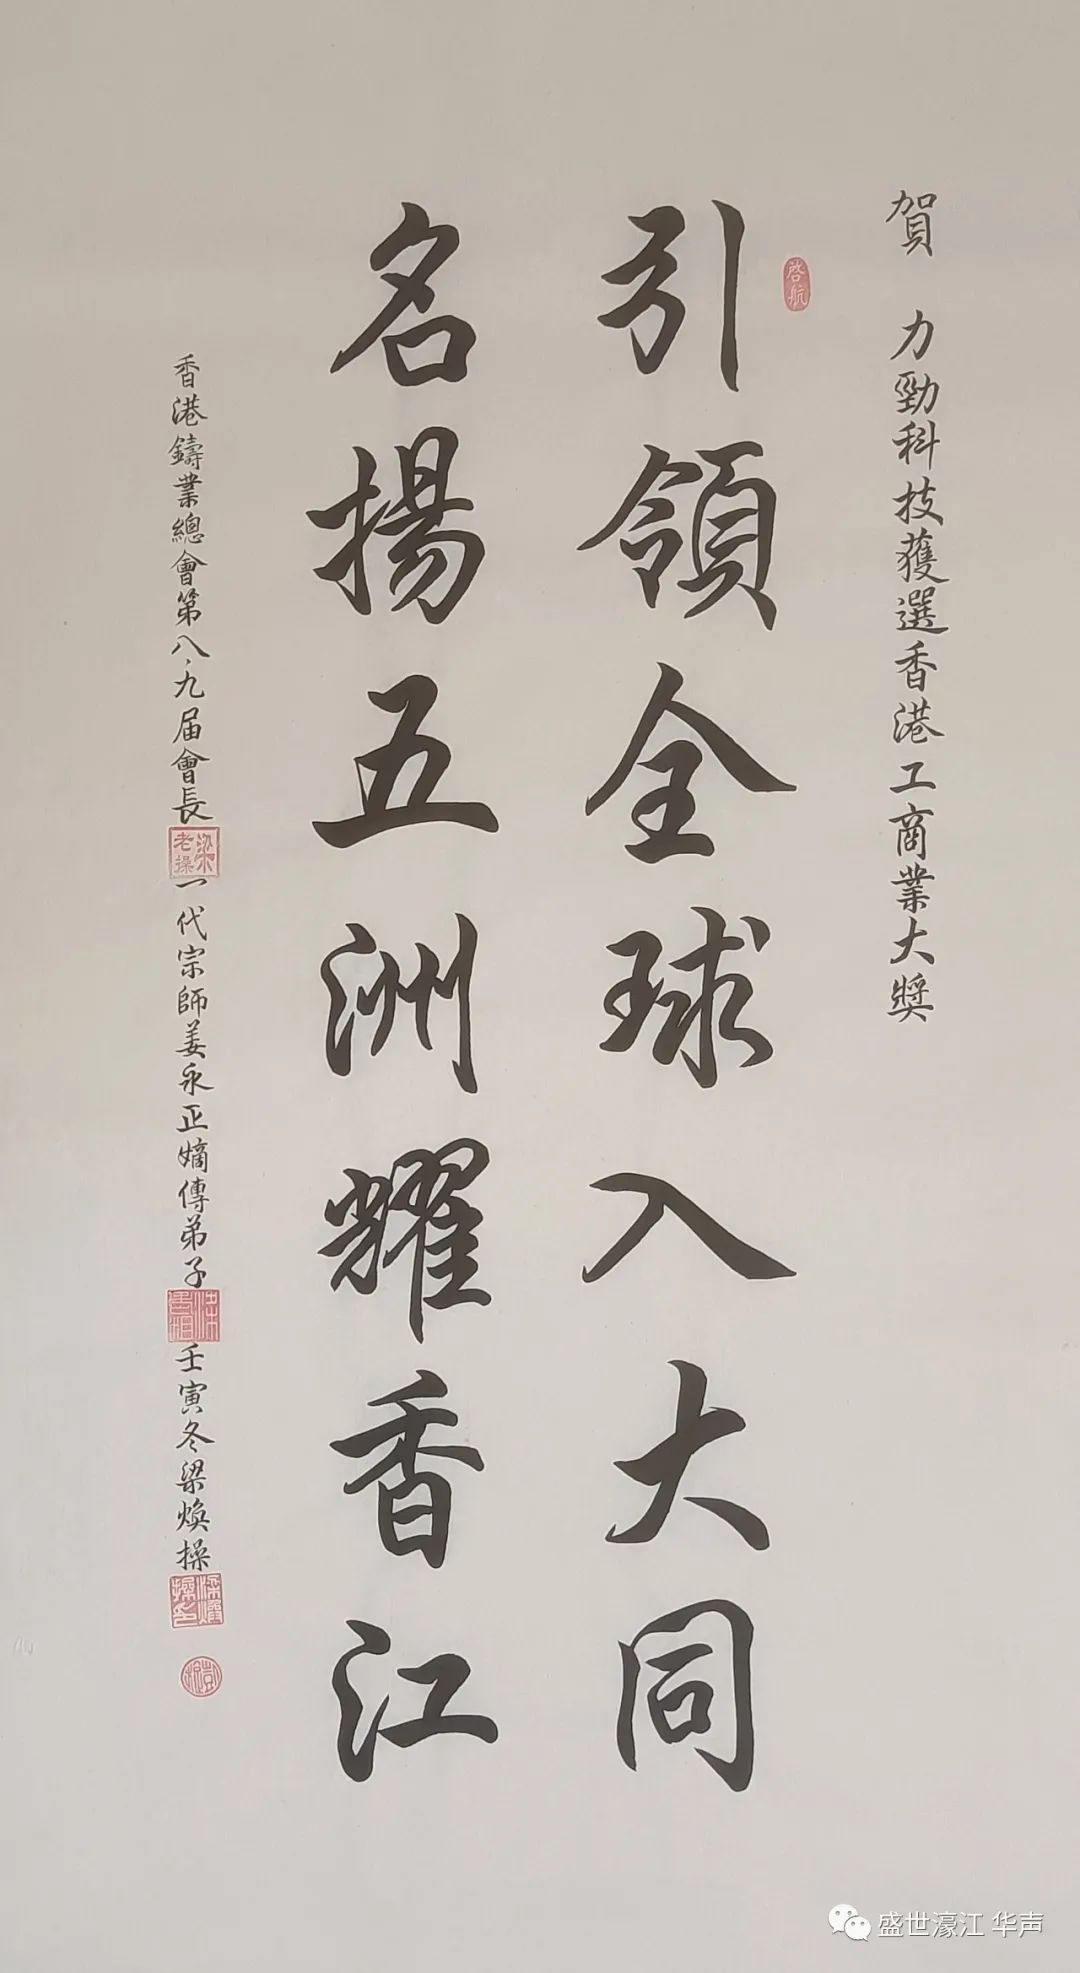 賀 力勁科技獲選香港工商業大獎
啓航
引領全球入大同
名揚五洲耀香江
香港鑄業總會第八、九届會長
梁老操
一代宗師姜永正嫡傳弟子
壬寅冬梁煥操
盛世濠江 华声